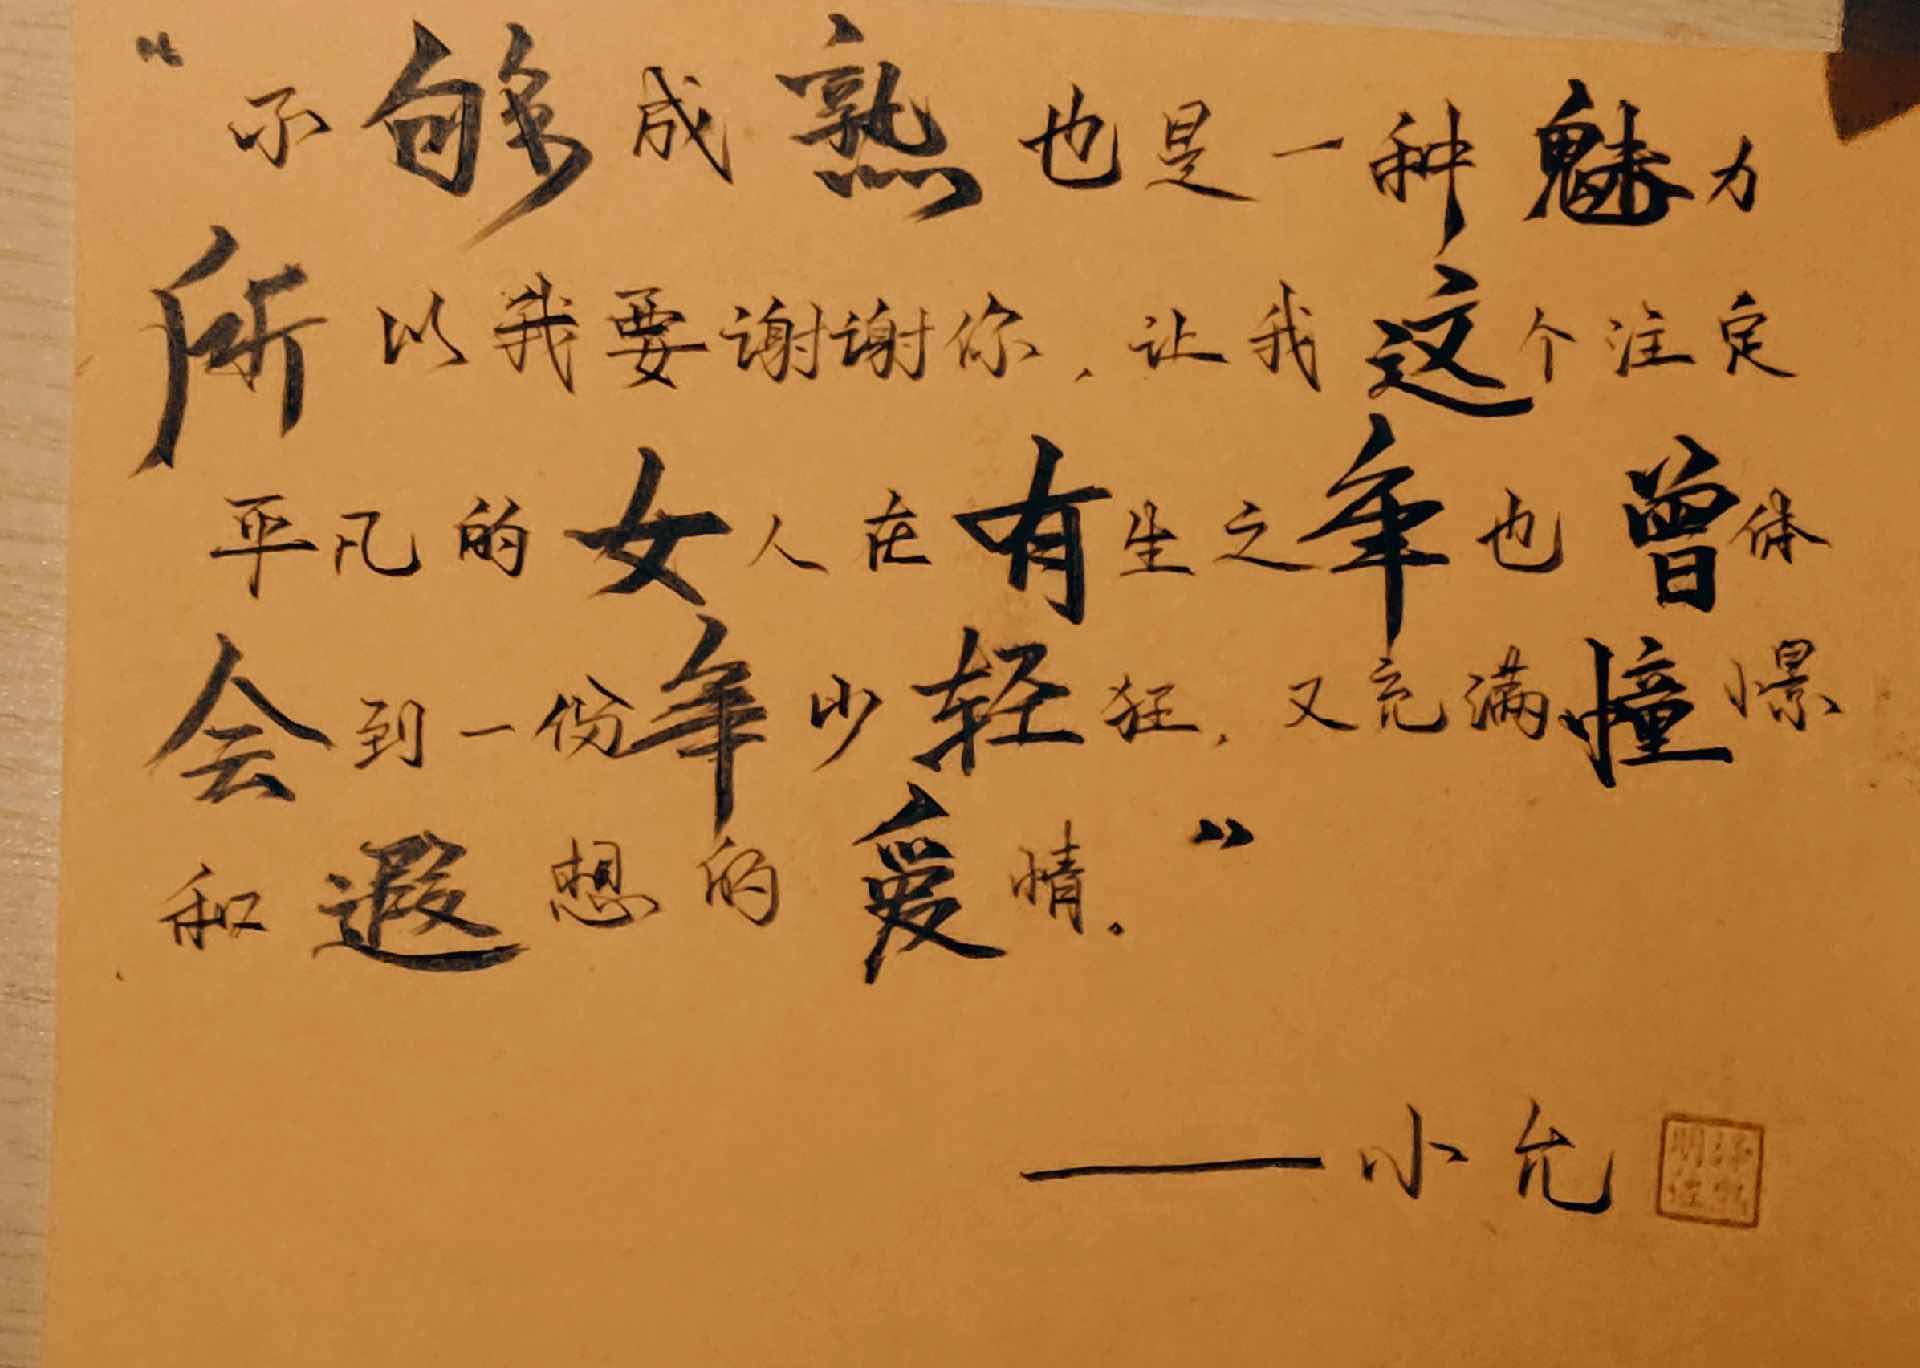 “不够成熟也是一种魅力
所以我要谢谢你，让我这个注定
平凡的女人在有生之年也曾体
会到一份年少轻狂，又充满憧憬
和遐想的爱情。”
——小允